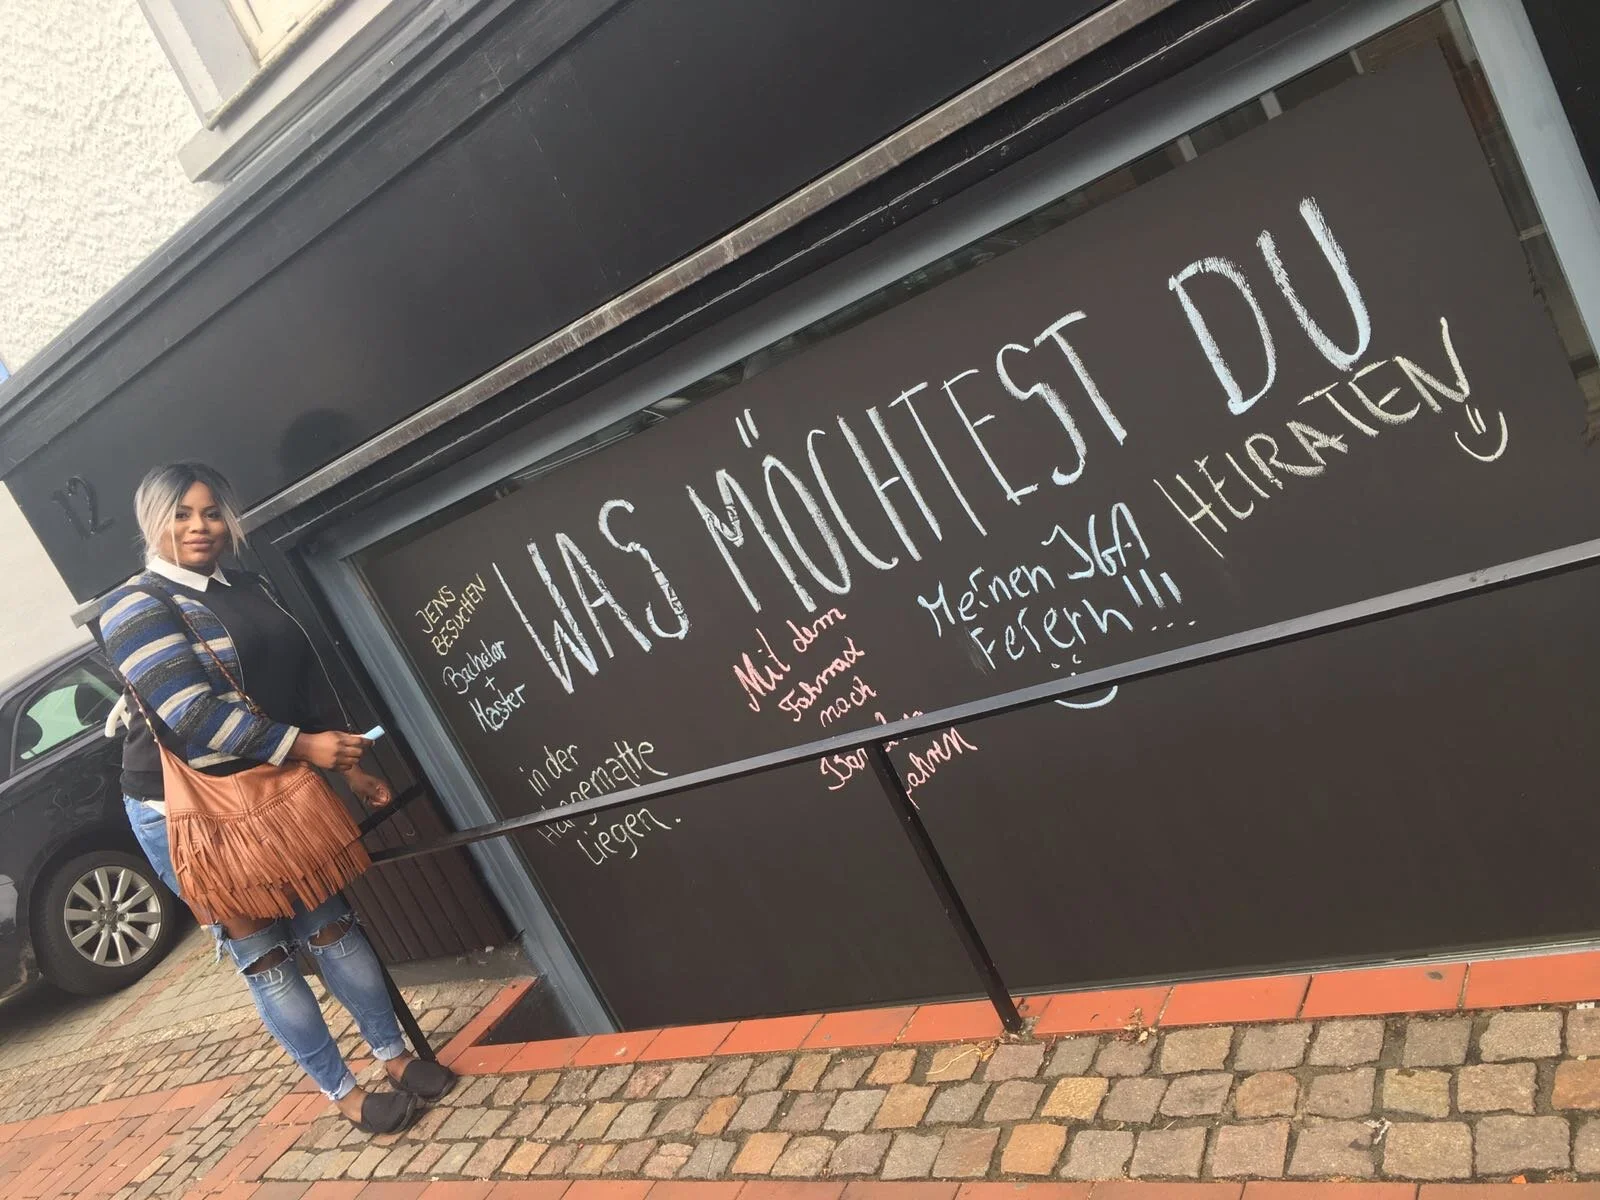 12
WAS MÖCHTEST DU
JENS
BESUCHEN
Bachelor
+
Master
in der
Hängematte
Liegen.
Mit dem
Fahrrad
nach
fahren
Meinen
Feiern!!!...
HEIRATEN